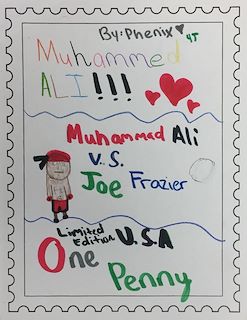 By: Phenix
4J
Muhammed
ALI!!!
Muhammad Ali
V.S.
Joe Frazier
Limited
Edition U.S.A
One
Penny